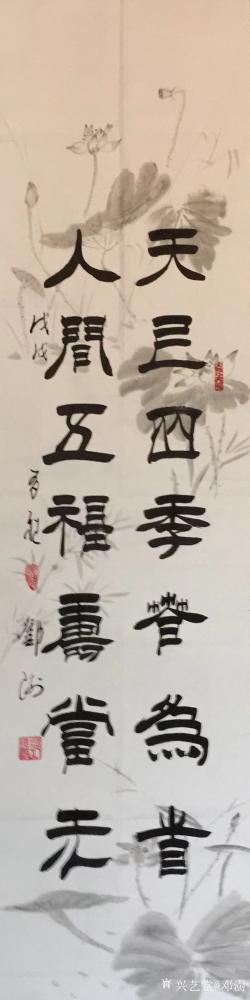 天上四季春為首
人間五福壽當先
戊戌
鄧
兴艺堂@邓